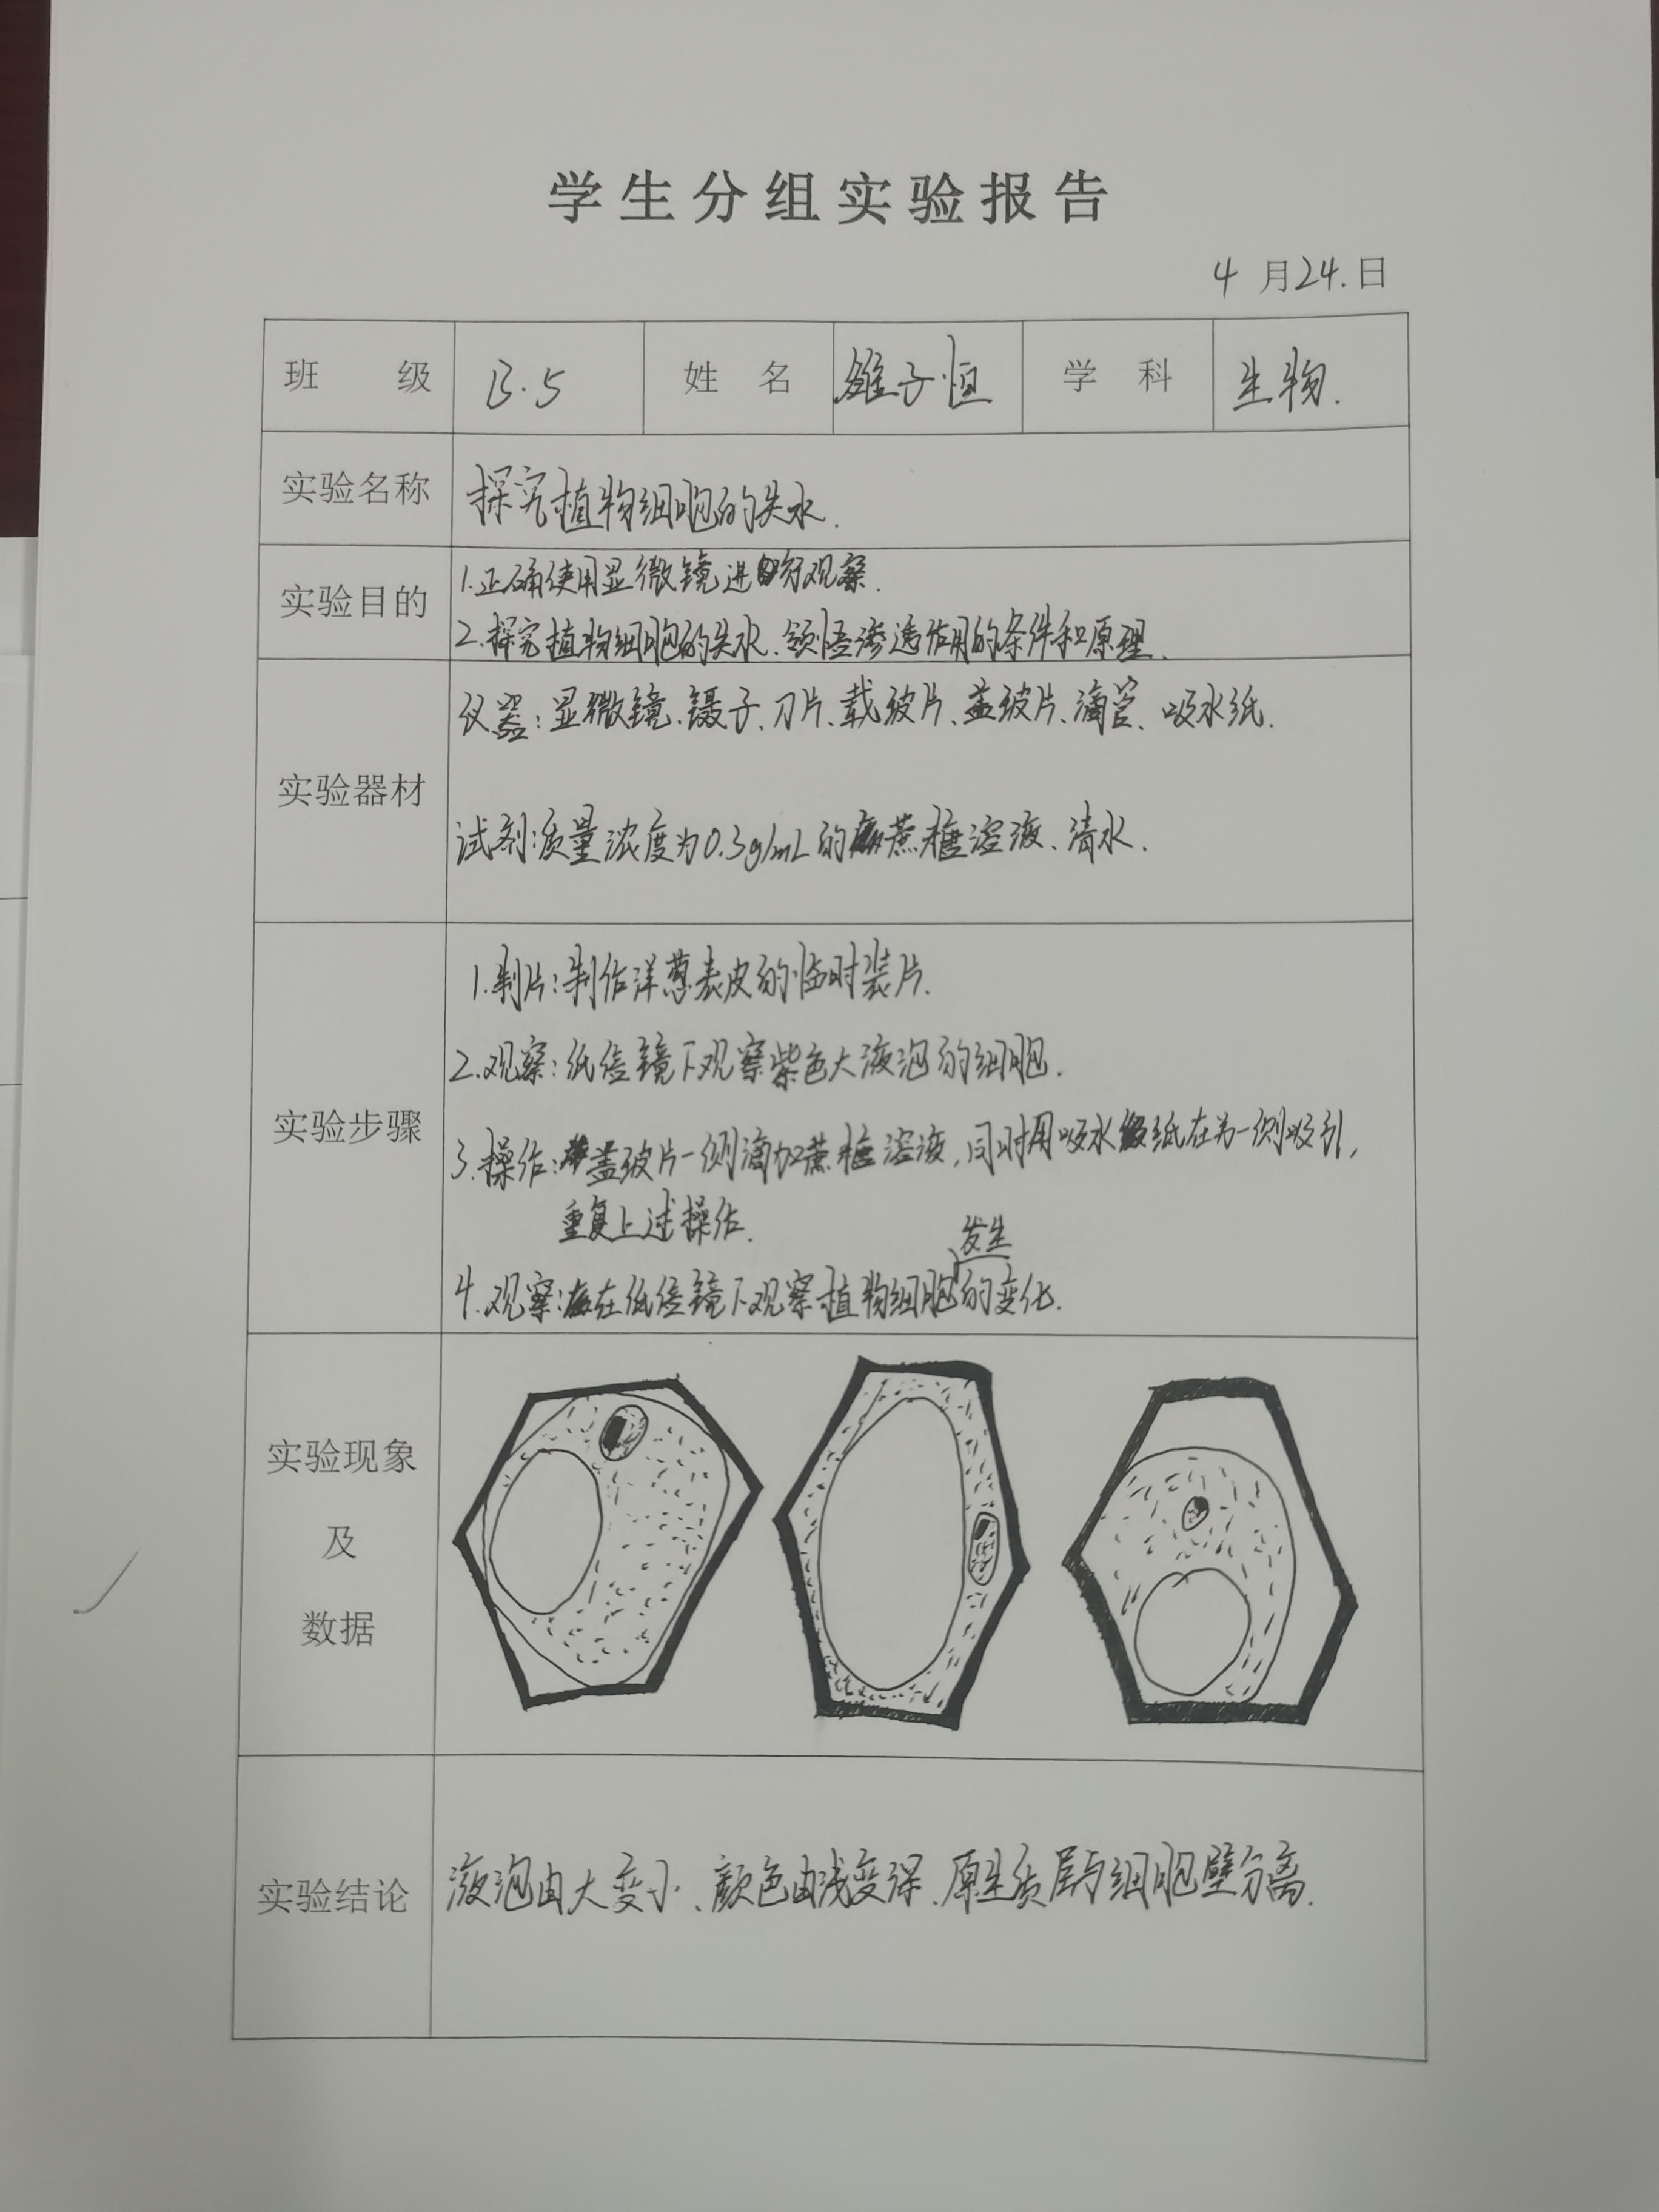 学生分组实验报告
4月24.日
班级 B.5 姓名 雒子恒 学科 生物.
实验名称 探究植物细胞的失水.
实验目的 1.正确使用显微镜进行观察.
2.探究植物细胞的失水、领悟渗透作用的条件和原理.
实验器材 仪器:显微镜、镊子、刀片、载玻片、盖玻片、滴管、吸水纸.
试剂:质量浓度为0.3g/mL的蔗糖溶液、清水.
实验步骤 1.制片:制作洋葱表皮的临时装片.
2.观察:低倍镜下观察紫色大液泡的细胞.
3.操作:盖玻片一侧滴加蔗糖溶液,同时用吸水纸在另一侧吸引,
重复上述操作.
4.观察:在低倍镜下观察植物细胞发生的变化.
实验现象
及
数据
实验结论 液泡由大变小、颜色由浅变深、原生质层与细胞壁分离.